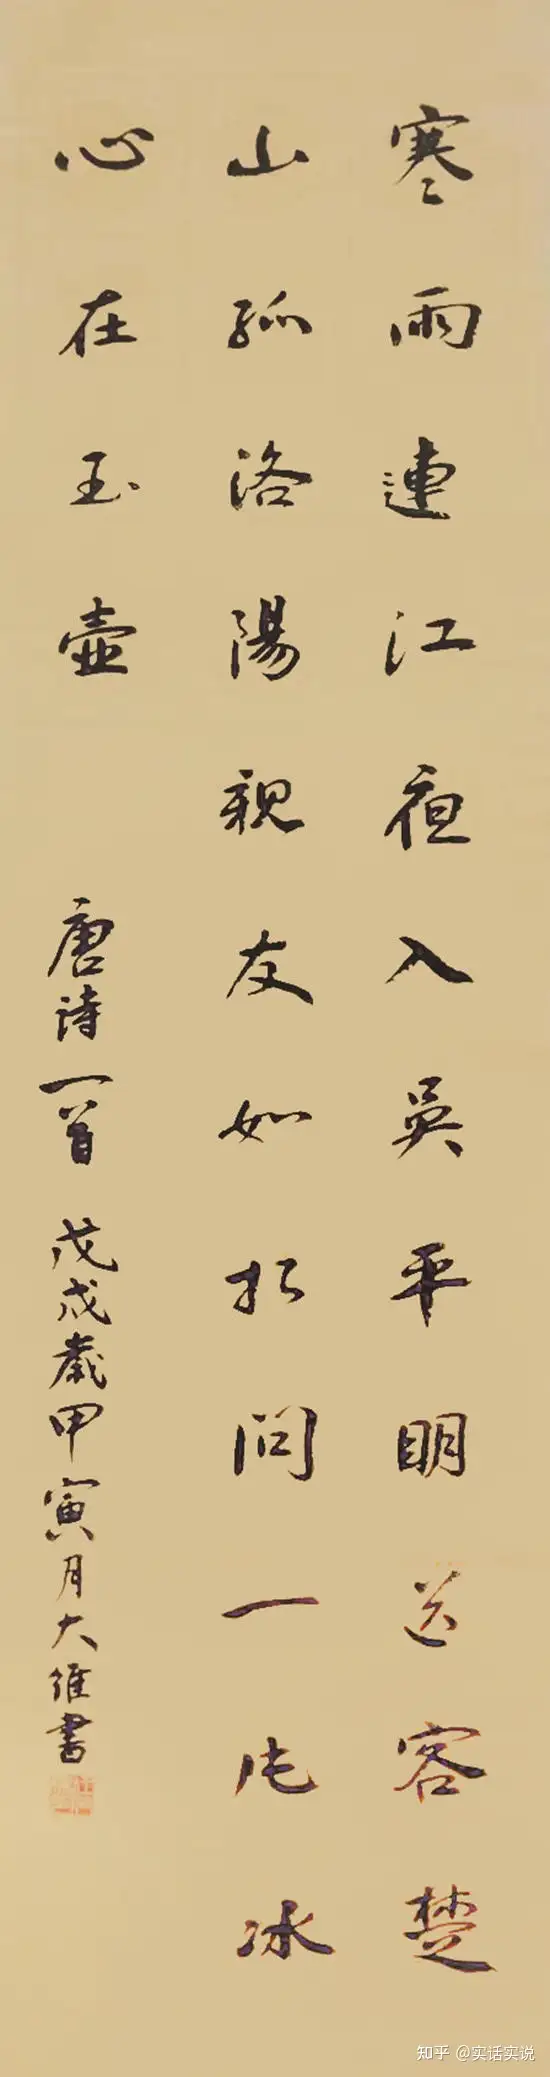 寒雨連江夜入吳平明送客楚
山孤洛陽親友如相問一片冰
心在玉壺
唐詩一首 戊戌歲甲寅月大維書
知乎 @实话实说